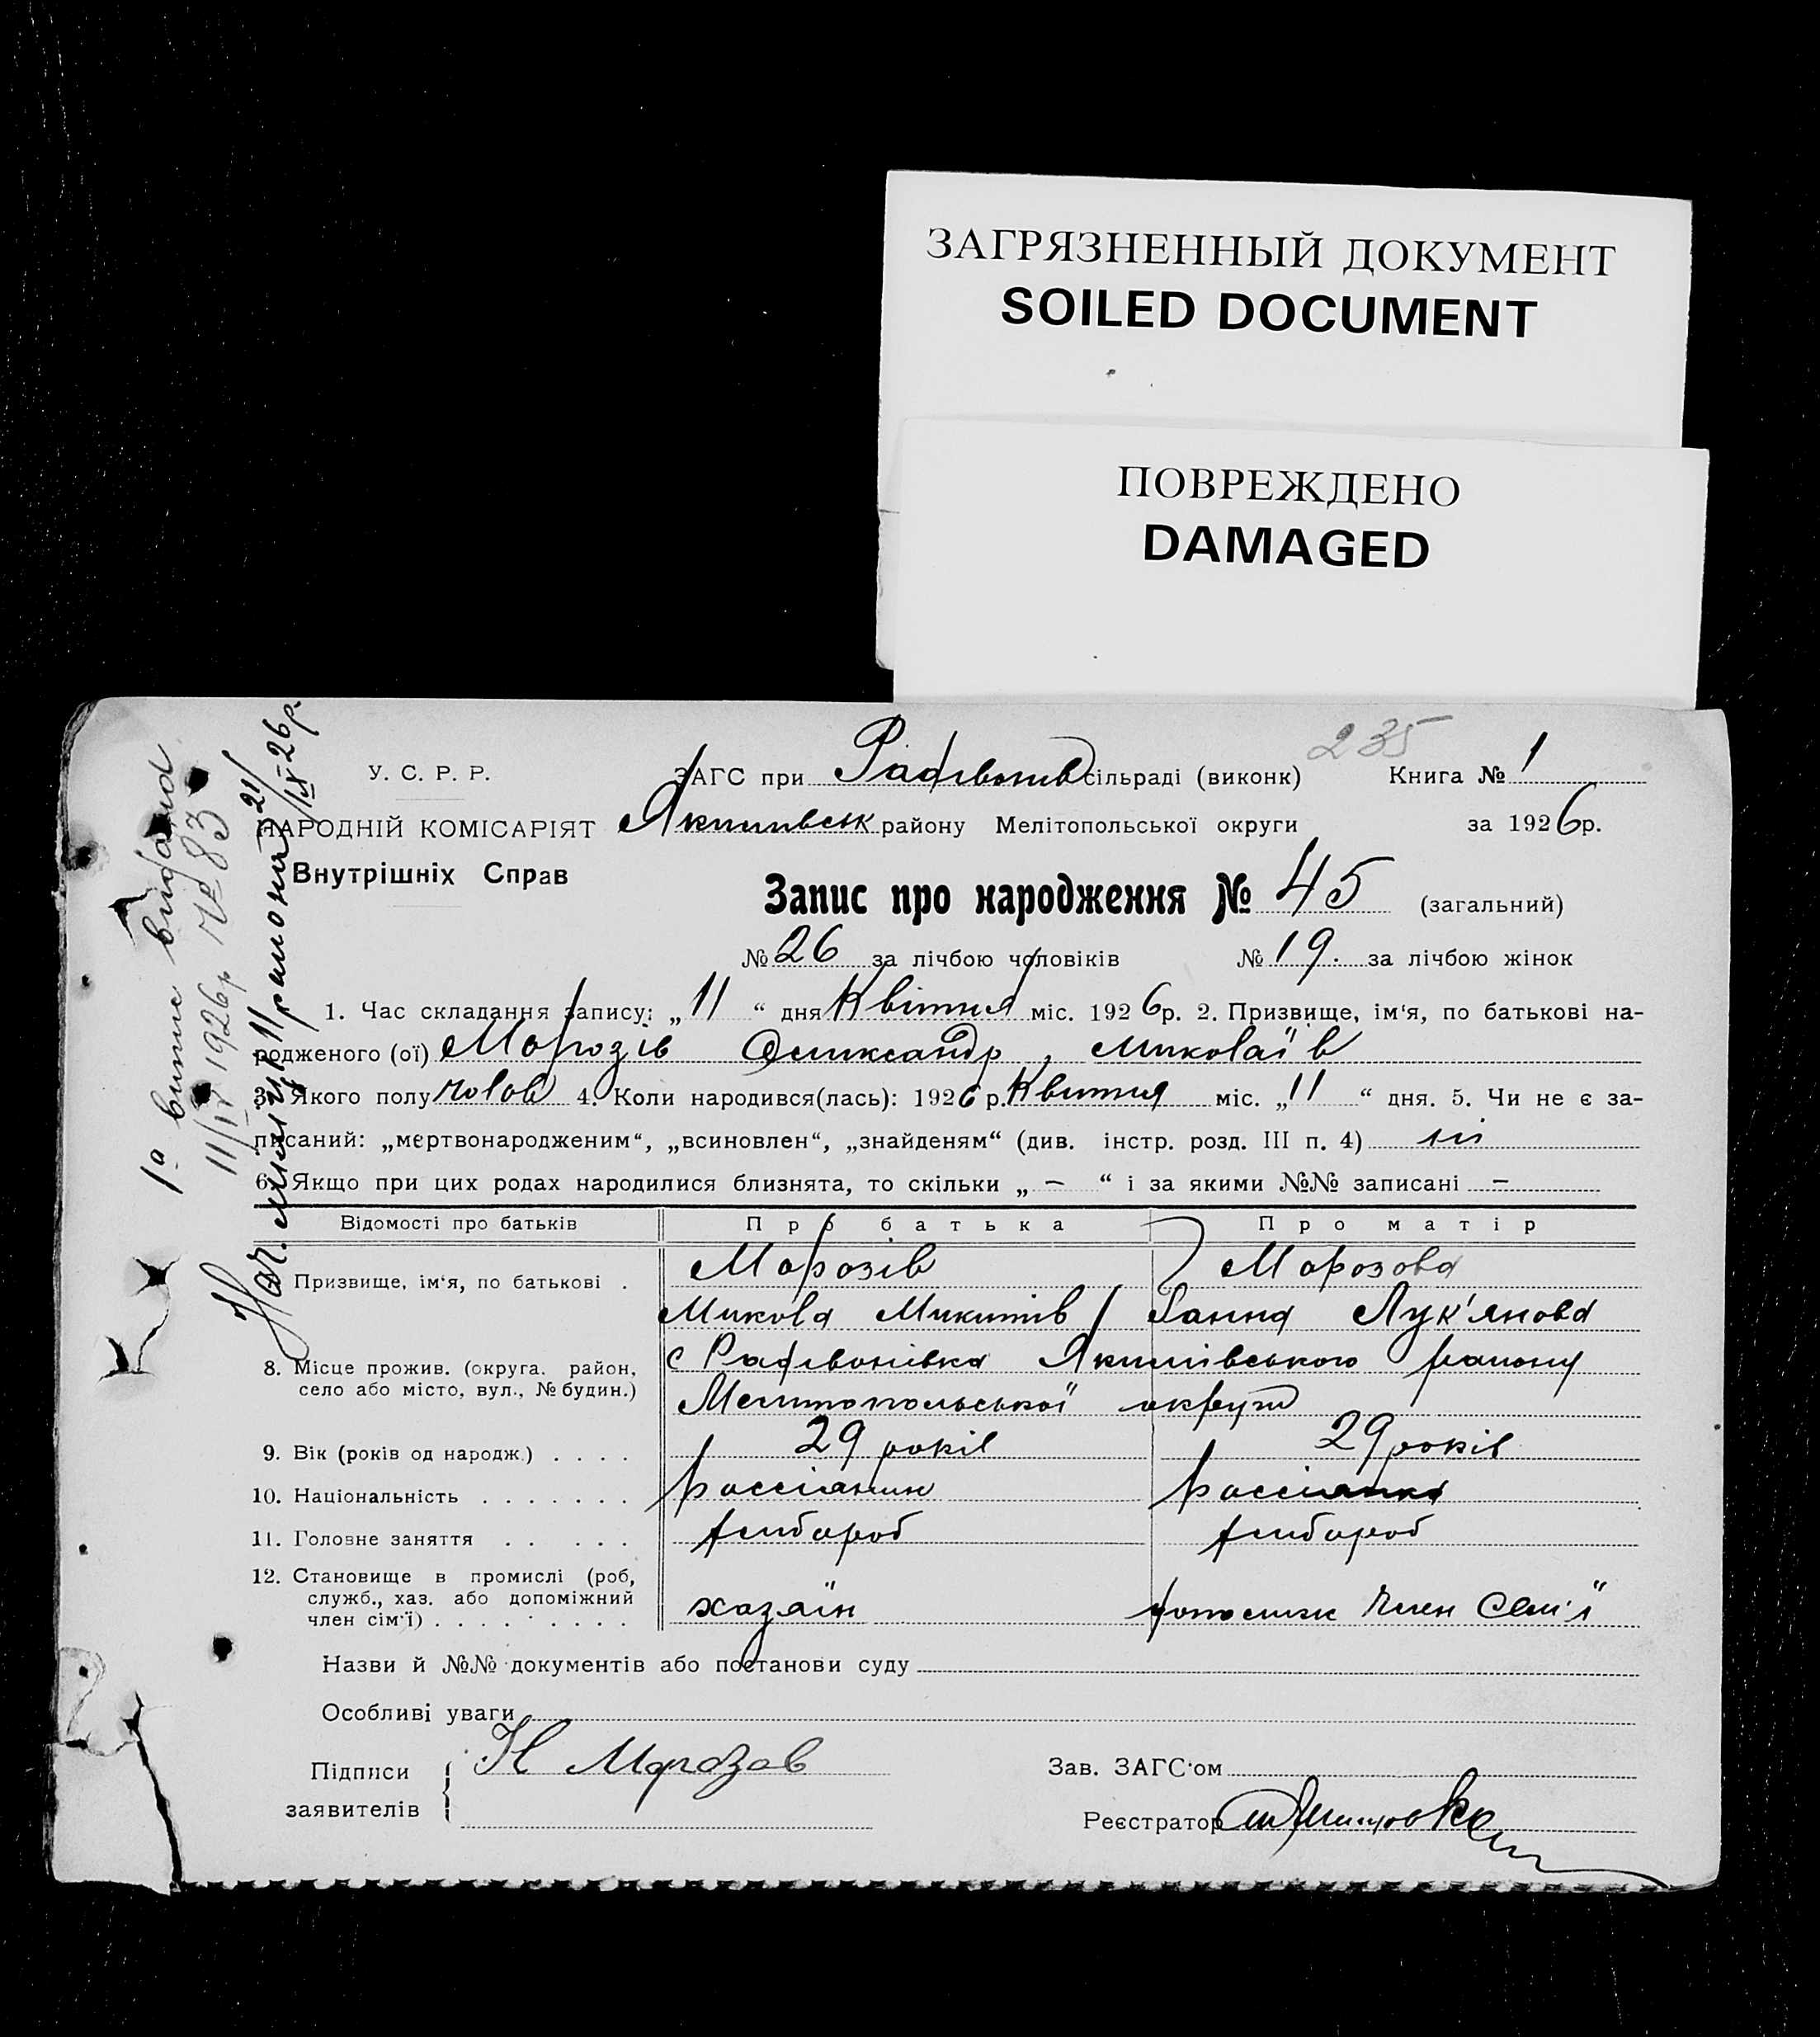 ЗАГРЯЗНЕННЫЙ ДОКУМЕНТ
SOILED DOCUMENT
ПОВРЕЖДЕНО
DAMAGED
235
У. С. Р. Р.
ЗАГС при сільраді (виконк) Книга № 1
НАРОДНІЙ КОМІСАРІЯТ Якимівськ району Мелітопольської округи за 1926р.
Внутрішніх Справ
Запис про народження № 45 (загальний)
№ 26 за лічбою чоловіків № 19. за лічбою жінок
1. Час складання запису: „11“ дня Квітня міс. 1926р. 2. Призвище, ім'я, по батькові на-
родженого (ої) Морозів Олександр, Миколаїв
3. Якого полу чолов 4. Коли народився(лась): 1926 р. Квітня міс. „11“ дня. 5. Чи не є за-
писаний: „мертвонародженим“, „всиновлен“, „знайденям“ (див. інстр. розд. III п. 4) ні
6. Якщо при цих родах народилися близнята, то скільки „ — “ і за якими №№ записані —
Відомості про батьків Про батька Про матір
Призвище, ім'я, по батькові . Морозів Морозова
Микола Микитів Ганна Лук'янова
8. Місце прожив. (округа, район, село або місто, вул., № будин.) с Якимівського району
Мелитопольської округи
9. Вік (років од народж.) . . . . 29 років 29 років
10. Національність . . . . . . . россіянин россіянка
11. Головне заняття . . . . . хлибороб хлибороб
12. Становище в промислі (роб,
служб., хаз. або допоміжний
член сім'ї) . . . . . . . . . хазяїн член сем'ї
Назви й №№ документів або постанови суду
Особливі уваги
Підписи Н Морозов Зав. ЗАГС'ом
заявителів Реєстратор
1а випис видана
11/IV 1926р № 83
21/IX 26р.